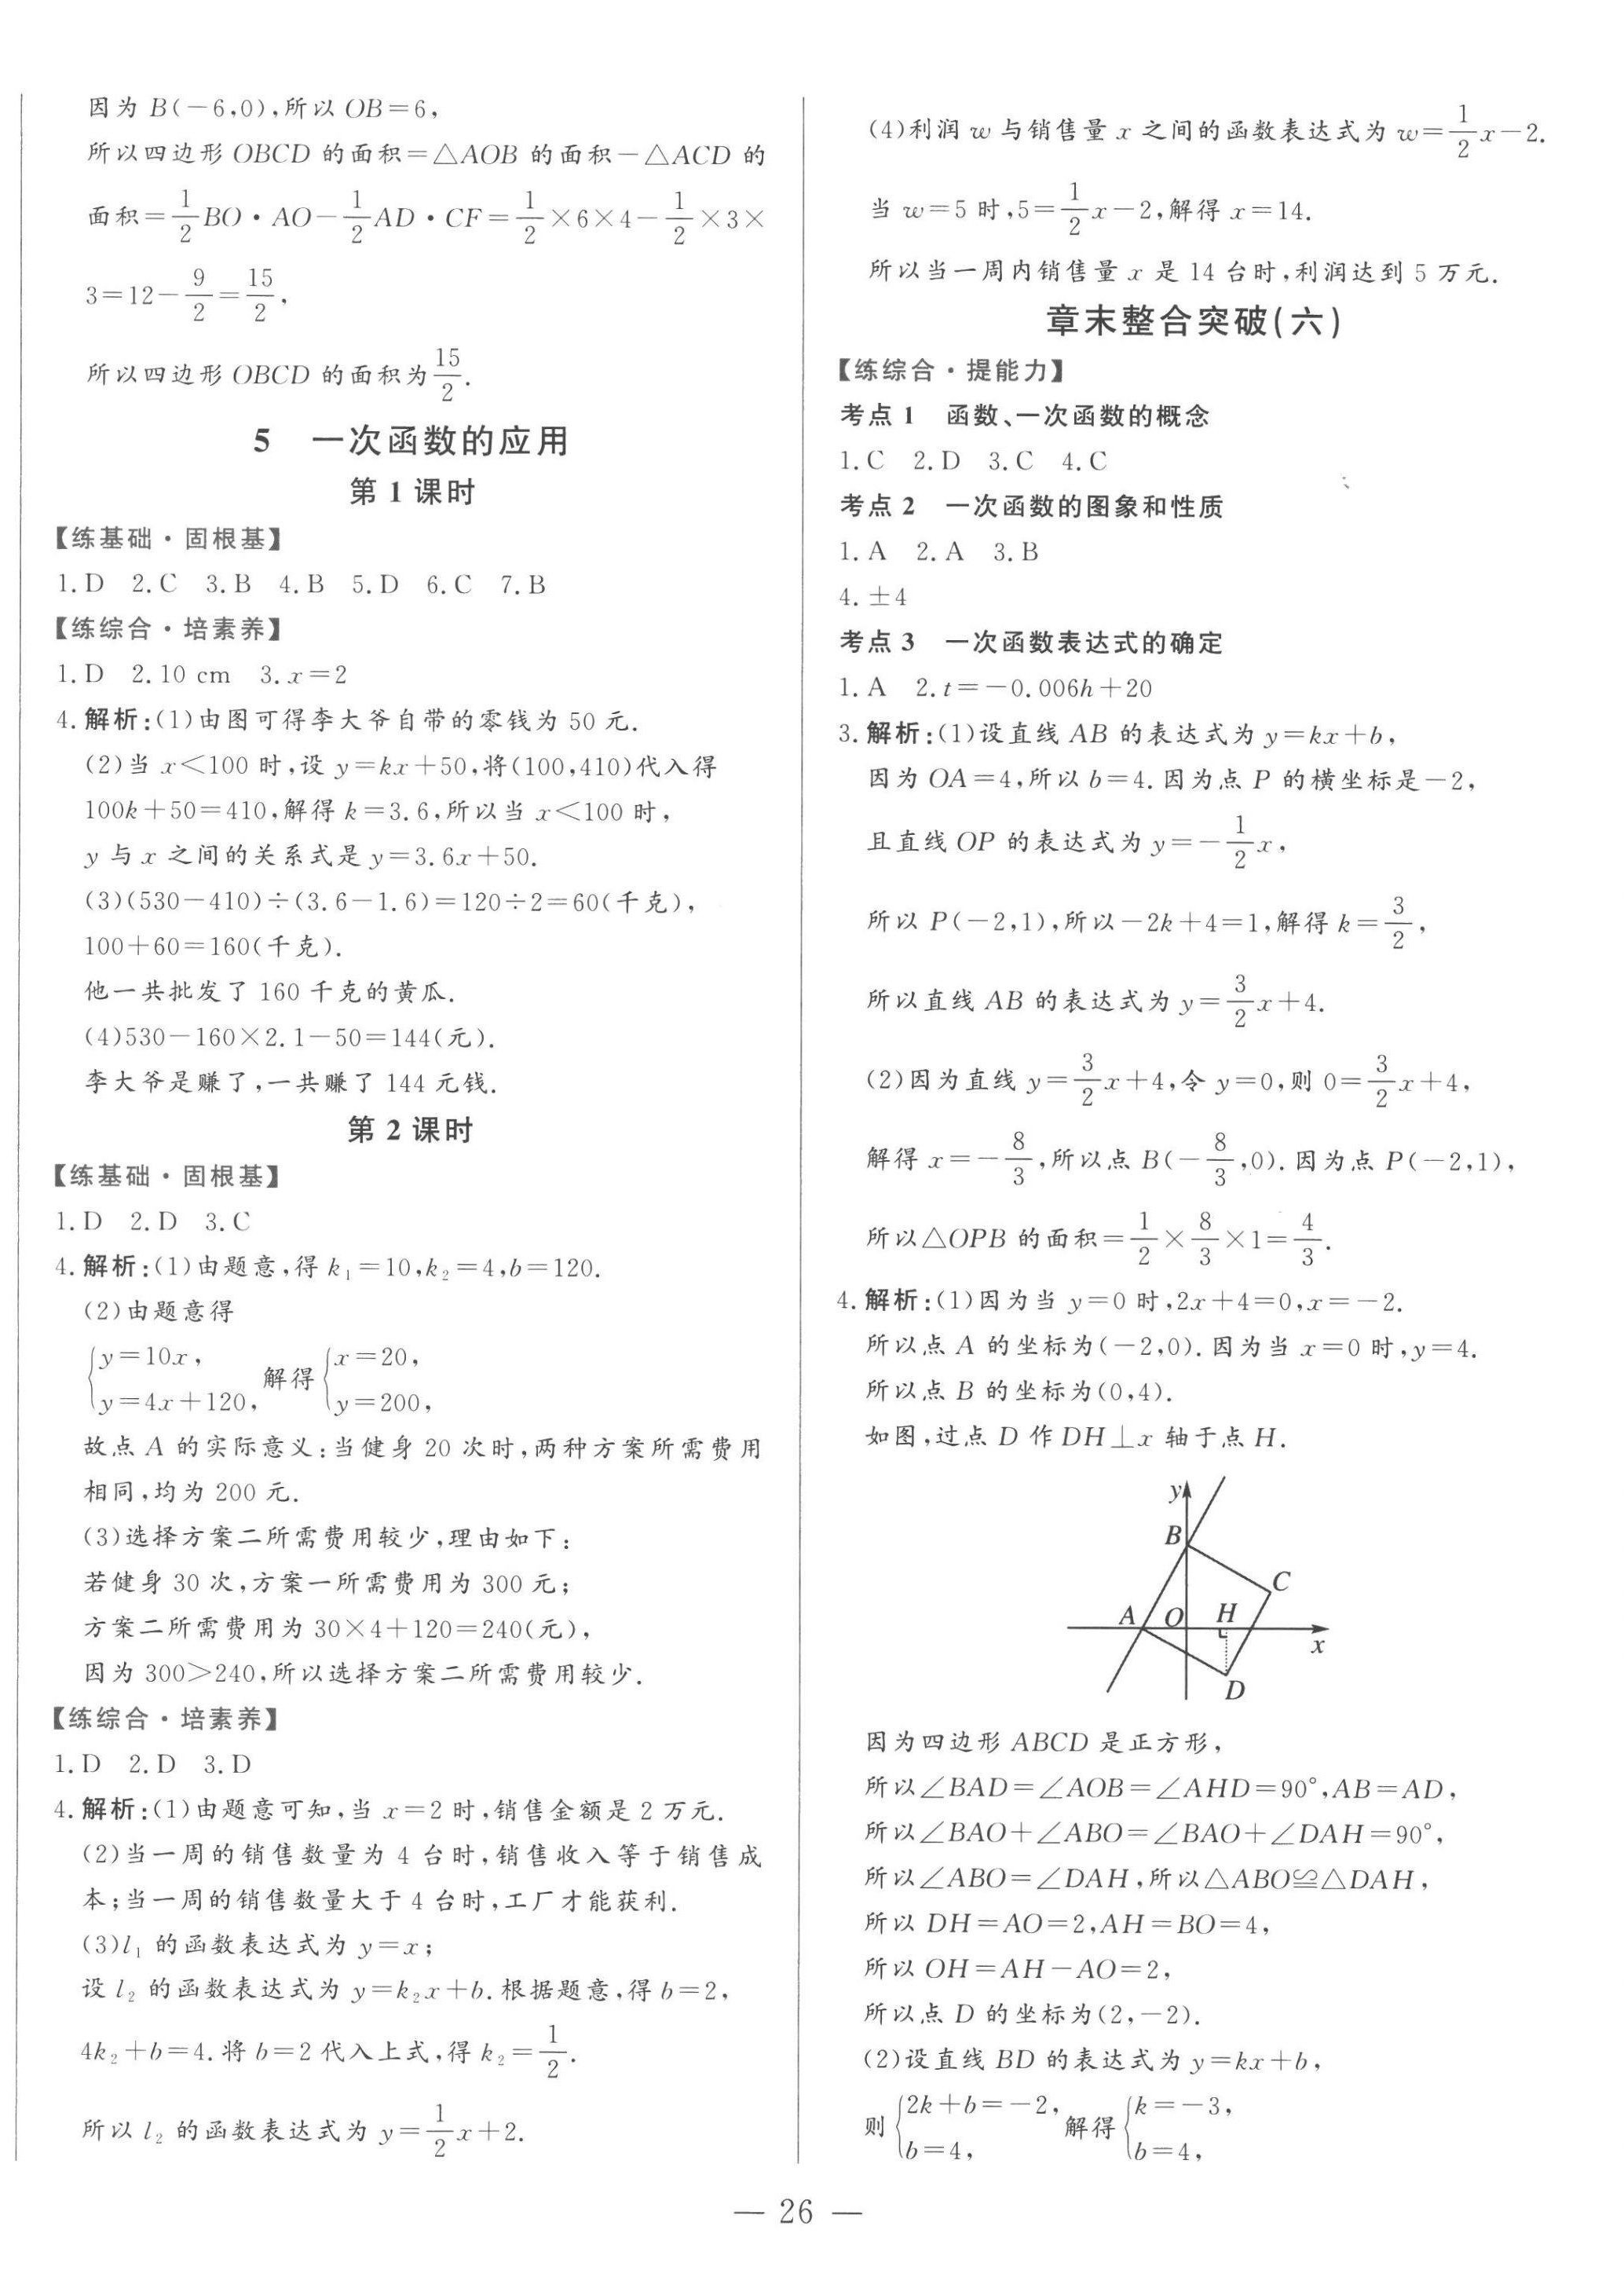 因为 B(－6,0),所以 OB＝6,
所以四边形 OBCD 的面积＝△AOB 的面积－△ACD 的
面积＝1/2 BO·AO－1/2 AD·CF＝1/2×6×4－1/2×3×
3＝12－9/2＝15/2,
所以四边形 OBCD 的面积为 15/2.
5 一次函数的应用
第 1 课时
【练基础·固根基】
1.D 2.C 3.B 4.B 5.D 6.C 7.B
【练综合·培素养】
1.D 2.10 cm 3.x＝2
4.解析:(1)由图可得李大爷自带的零钱为 50 元.
(2)当 x＜100 时,设 y＝kx＋50,将(100,410)代入得
100k＋50＝410,解得 k＝3.6,所以当 x＜100 时,
y 与 x 之间的关系式是 y＝3.6x＋50.
(3)(530－410)÷(3.6－1.6)＝120÷2＝60(千克),
100＋60＝160(千克).
他一共批发了 160 千克的黄瓜.
(4)530－160×2.1－50＝144(元).
李大爷是赚了,一共赚了 144 元钱.
第 2 课时
【练基础·固根基】
1.D 2.D 3.C
4.解析:(1)由题意,得 k₁＝10,k₂＝4,b＝120.
(2)由题意得
{y＝10x, y＝4x＋120, 解得 {x＝20, y＝200,
故点 A 的实际意义:当健身 20 次时,两种方案所需费用
相同,均为 200 元.
(3)选择方案二所需费用较少,理由如下:
若健身 30 次,方案一所需费用为 300 元;
方案二所需费用为 30×4＋120＝240(元),
因为 300＞240,所以选择方案二所需费用较少.
【练综合·培素养】
1.D 2.D 3.D
4.解析:(1)由题意可知,当 x＝2 时,销售金额是 2 万元.
(2)当一周的销售数量为 4 台时,销售收入等于销售成
本;当一周的销售数量大于 4 台时,工厂才能获利.
(3)l₁ 的函数表达式为 y＝x;
设 l₂ 的函数表达式为 y＝k₂x＋b.根据题意,得 b＝2,
4k₂＋b＝4.将 b＝2 代入上式,得 k₂＝1/2.
所以 l₂ 的函数表达式为 y＝1/2 x＋2.
(4)利润 w 与销售量 x 之间的函数表达式为 w＝1/2 x－2.
当 w＝5 时,5＝1/2 x－2,解得 x＝14.
所以当一周内销售量 x 是 14 台时,利润达到 5 万元.
章末整合突破(六)
【练综合·提能力】
考点 1 函数、一次函数的概念
1.C 2.D 3.C 4.C
考点 2 一次函数的图象和性质
1.A 2.A 3.B
4.±4
考点 3 一次函数表达式的确定
1.A 2.t＝－0.006h＋20
3.解析:(1)设直线 AB 的表达式为 y＝kx＋b,
因为 OA＝4,所以 b＝4.因为点 P 的横坐标是－2,
且直线 OP 的表达式为 y＝－1/2 x,
所以 P(－2,1),所以－2k＋4＝1,解得 k＝3/2,
所以直线 AB 的表达式为 y＝3/2 x＋4.
(2)因为直线 y＝3/2 x＋4,令 y＝0,则 0＝3/2 x＋4,
解得 x＝－8/3,所以点 B(－8/3,0).因为点 P(－2,1),
所以△OPB 的面积＝1/2×8/3×1＝4/3.
4.解析:(1)因为当 y＝0 时,2x＋4＝0,x＝－2.
所以点 A 的坐标为(－2,0).因为当 x＝0 时,y＝4.
所以点 B 的坐标为(0,4).
如图,过点 D 作 DH⊥x 轴于点 H.
y
B
C
A O H
x
D
因为四边形 ABCD 是正方形,
所以∠BAD＝∠AOB＝∠AHD＝90°,AB＝AD,
所以∠BAO＋∠ABO＝∠BAO＋∠DAH＝90°,
所以∠ABO＝∠DAH,所以△ABO≌△DAH,
所以 DH＝AO＝2,AH＝BO＝4,
所以 OH＝AH－AO＝2,
所以点 D 的坐标为(2,－2).
(2)设直线 BD 的表达式为 y＝kx＋b,
则 {2k＋b＝－2, b＝4, 解得 {k＝－3, b＝4,
— 26 —